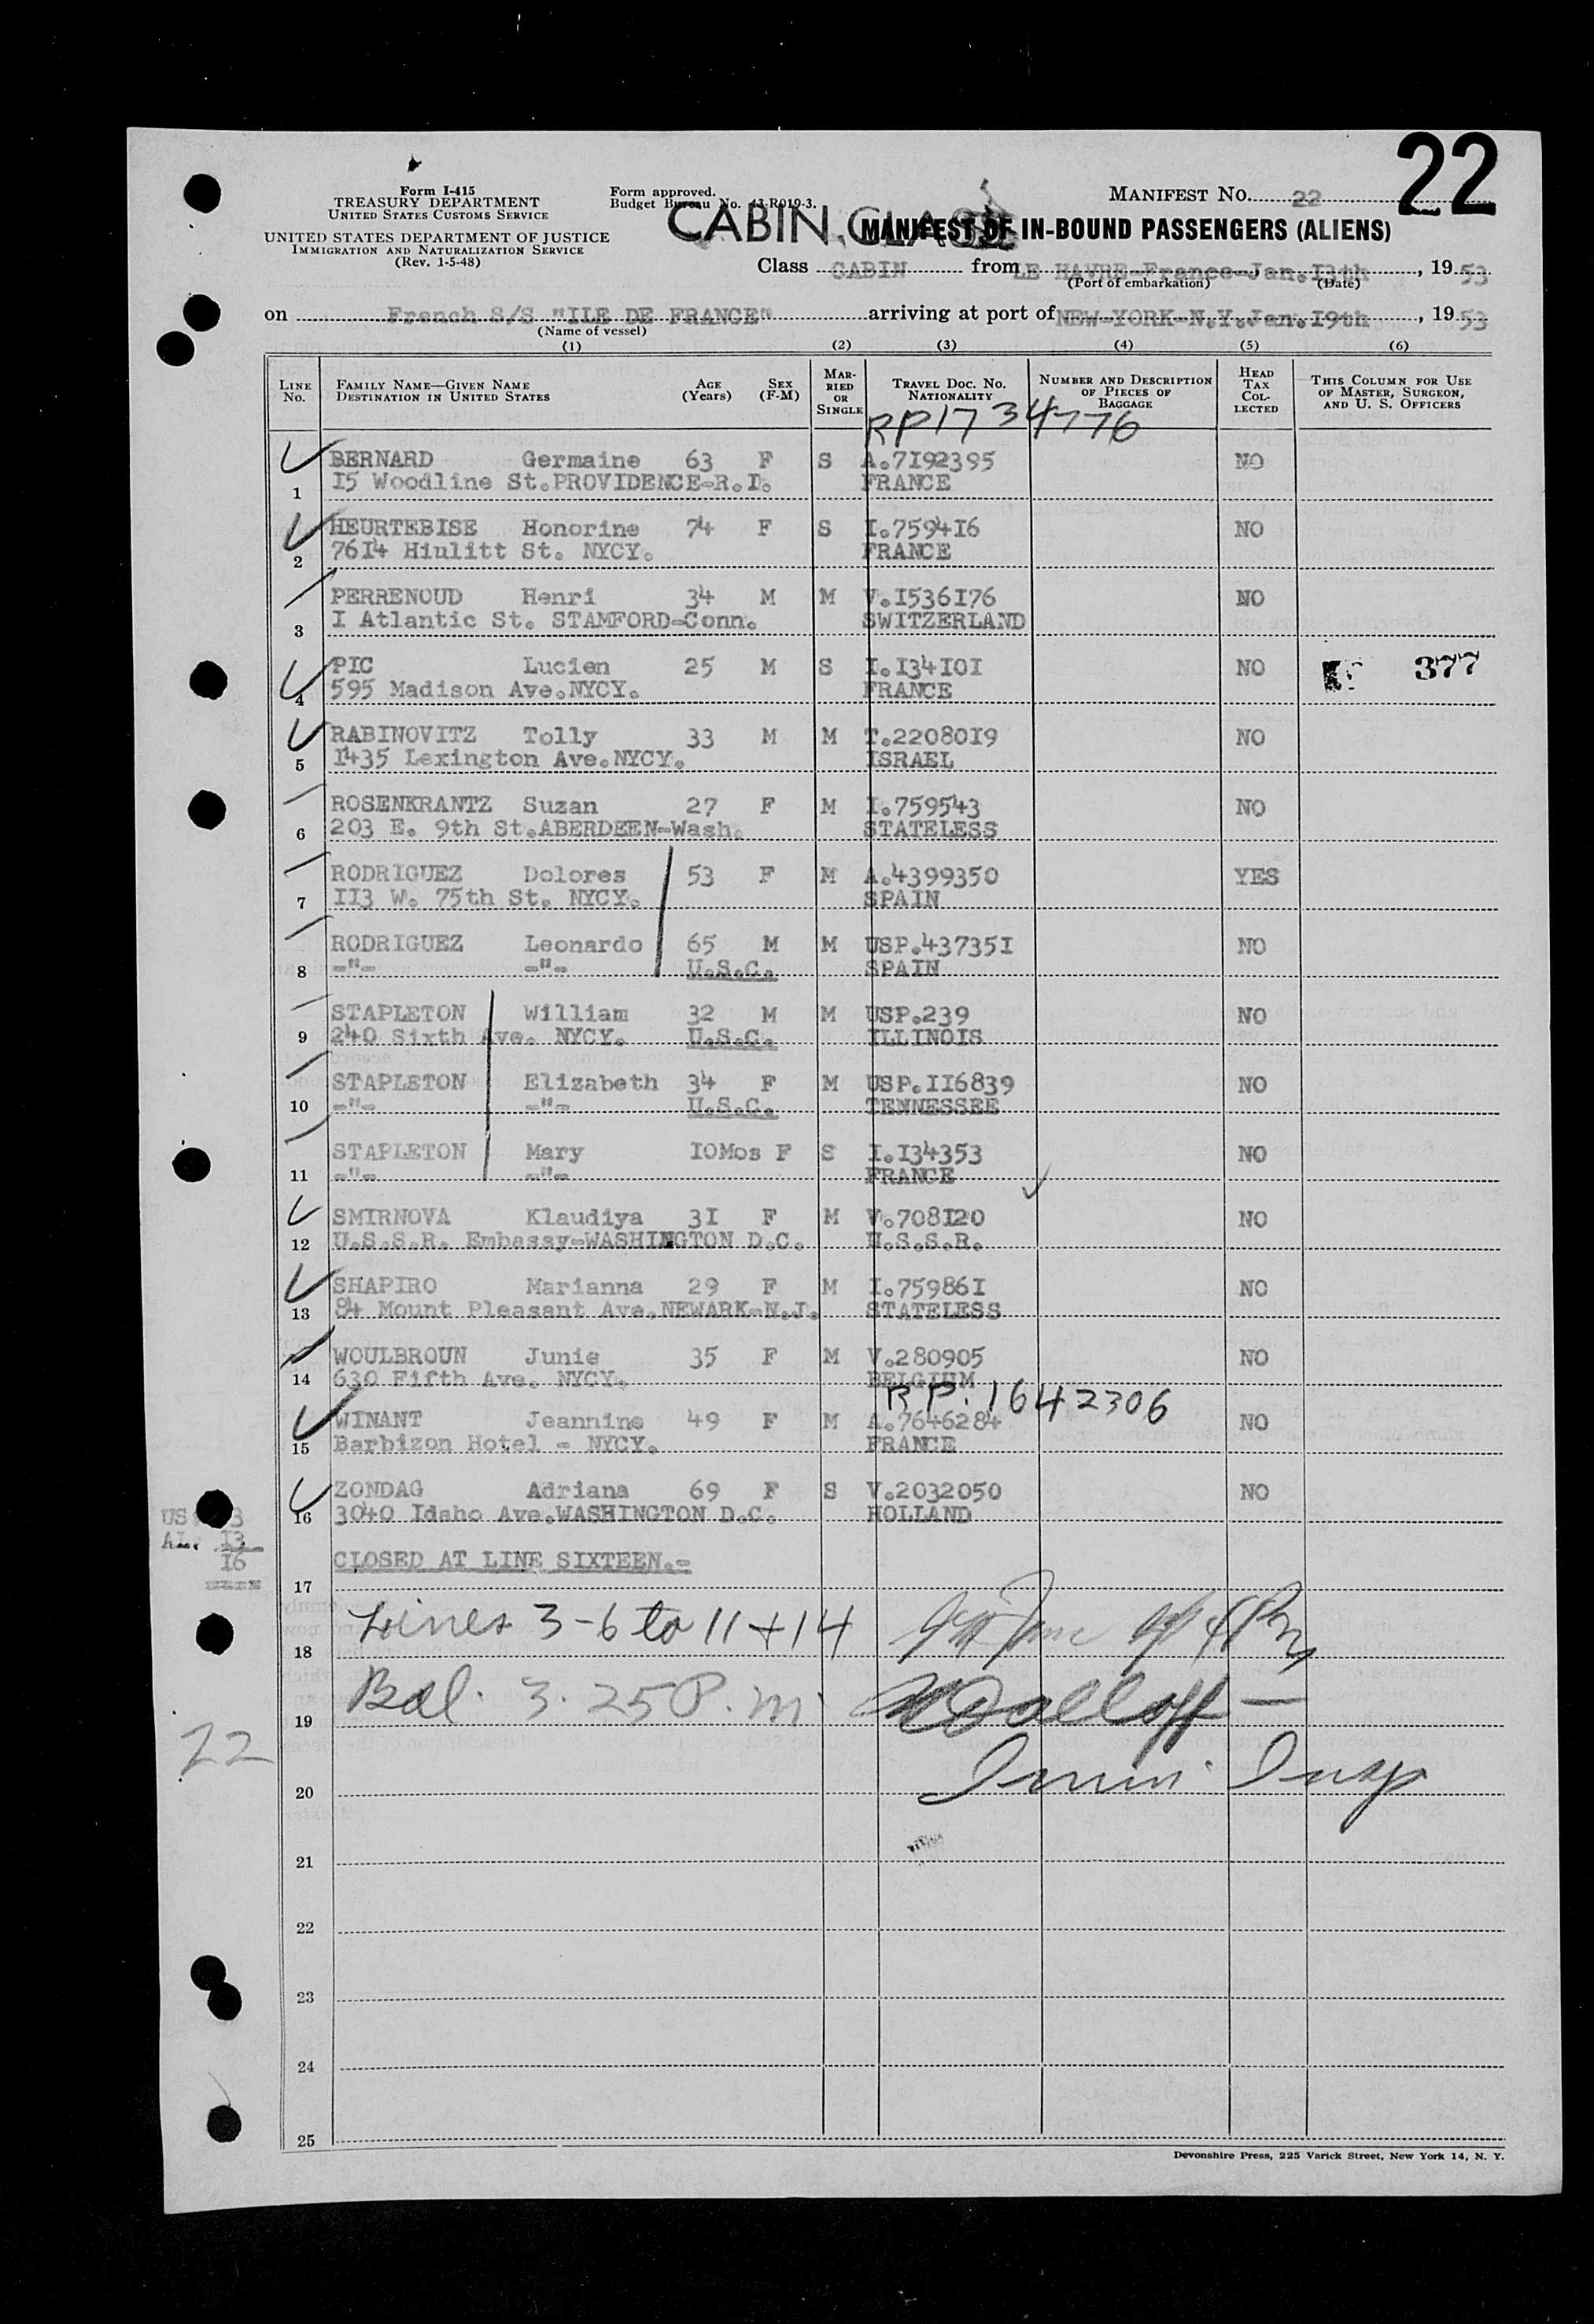 22
Form I-415
TREASURY DEPARTMENT
UNITED STATES CUSTOMS SERVICE
UNITED STATES DEPARTMENT OF JUSTICE
IMMIGRATION AND NATURALIZATION SERVICE
(Rev. 1-5-48)
Form approved.
Budget Bureau No. 43-R019-3.
MANIFEST No. 22
CABIN CLASS
MANIFEST OF IN-BOUND PASSENGERS (ALIENS)
Class CABIN from LE HAVRE-France-Jan.I3th, 19 53
(Port of embarkation) (Date)
on French S/S "ILE DE FRANCE" arriving at port of NEW-YORK-N.Y.Jan.I9th, 19 53
(Name of vessel)
(1) (2) (3) (4) (5) (6)
LINE No. FAMILY NAME—GIVEN NAME DESTINATION IN UNITED STATES AGE (Years) SEX (F-M) MARRIED OR SINGLE TRAVEL DOC. NO. NATIONALITY NUMBER AND DESCRIPTION OF PIECES OF BAGGAGE HEAD TAX COLLECTED THIS COLUMN FOR USE OF MASTER, SURGEON, AND U. S. OFFICERS
RP1734776
BERNARD Germaine 63 F S A.7I92395 NO
1 I5 Woodline St.PROVIDENCE-R.I. FRANCE
HEURTEBISE Honorine 74 F S I.7594I6 NO
2 76I4 Hiulitt St. NYCY. FRANCE
PERRENOUD Henri 34 M M V.I536I76 NO
3 I Atlantic St. STAMFORD-Conn. SWITZERLAND
PIC Lucien 25 M S I.I34IOI NO 377
4 595 Madison Ave.NYCY. FRANCE
RABINOVITZ Tolly 33 M M T.22080I9 NO
5 I435 Lexington Ave.NYCY. ISRAEL
ROSENKRANTZ Suzan 27 F M I.759543 NO
6 203 E. 9th St.ABERDEEN-Wash. STATELESS
RODRIGUEZ Dolores 53 F M A.4399350 YES
7 II3 W. 75th St. NYCY. SPAIN
RODRIGUEZ Leonardo 65 M M USP.43735I NO
8 -"- -"- U.S.C. SPAIN
STAPLETON William 32 M M USP.239 NO
9 240 Sixth Ave. NYCY. U.S.C. ILLINOIS
STAPLETON Elizabeth 34 F M USP.II6839 NO
10 -"- -"- U.S.C. TENNESSEE
STAPLETON Mary IOMos F S I.I34353 NO
11 -"- -"- FRANCE
SMIRNOVA Klaudiya 3I F M V.708I20 NO
12 U.S.S.R. Embassy-WASHINGTON D.C. U.S.S.R.
SHAPIRO Marianna 29 F M I.75986I NO
13 84 Mount Pleasant Ave.NEWARK-N.J. STATELESS
WOULBROUN Junie 35 F M V.280905 NO
14 630 Fifth Ave. NYCY. BELGIUM
RP.1642306
WINANT Jeannine 49 F M A.7646284 NO
15 Barbizon Hotel - NYCY. FRANCE
ZONDAG Adriana 69 F S V.2032050 NO
16 3040 Idaho Ave.WASHINGTON D.C. HOLLAND
US 3
AL. I3
I6
CLOSED AT LINE SIXTEEN.-
17
18 Lines 3-6 to 11+14
19 Bal. 3.25 P.m.
22
20 Immi. Insp
21
22
23
24
25
Devonshire Press, 225 Varick Street, New York 14, N. Y.